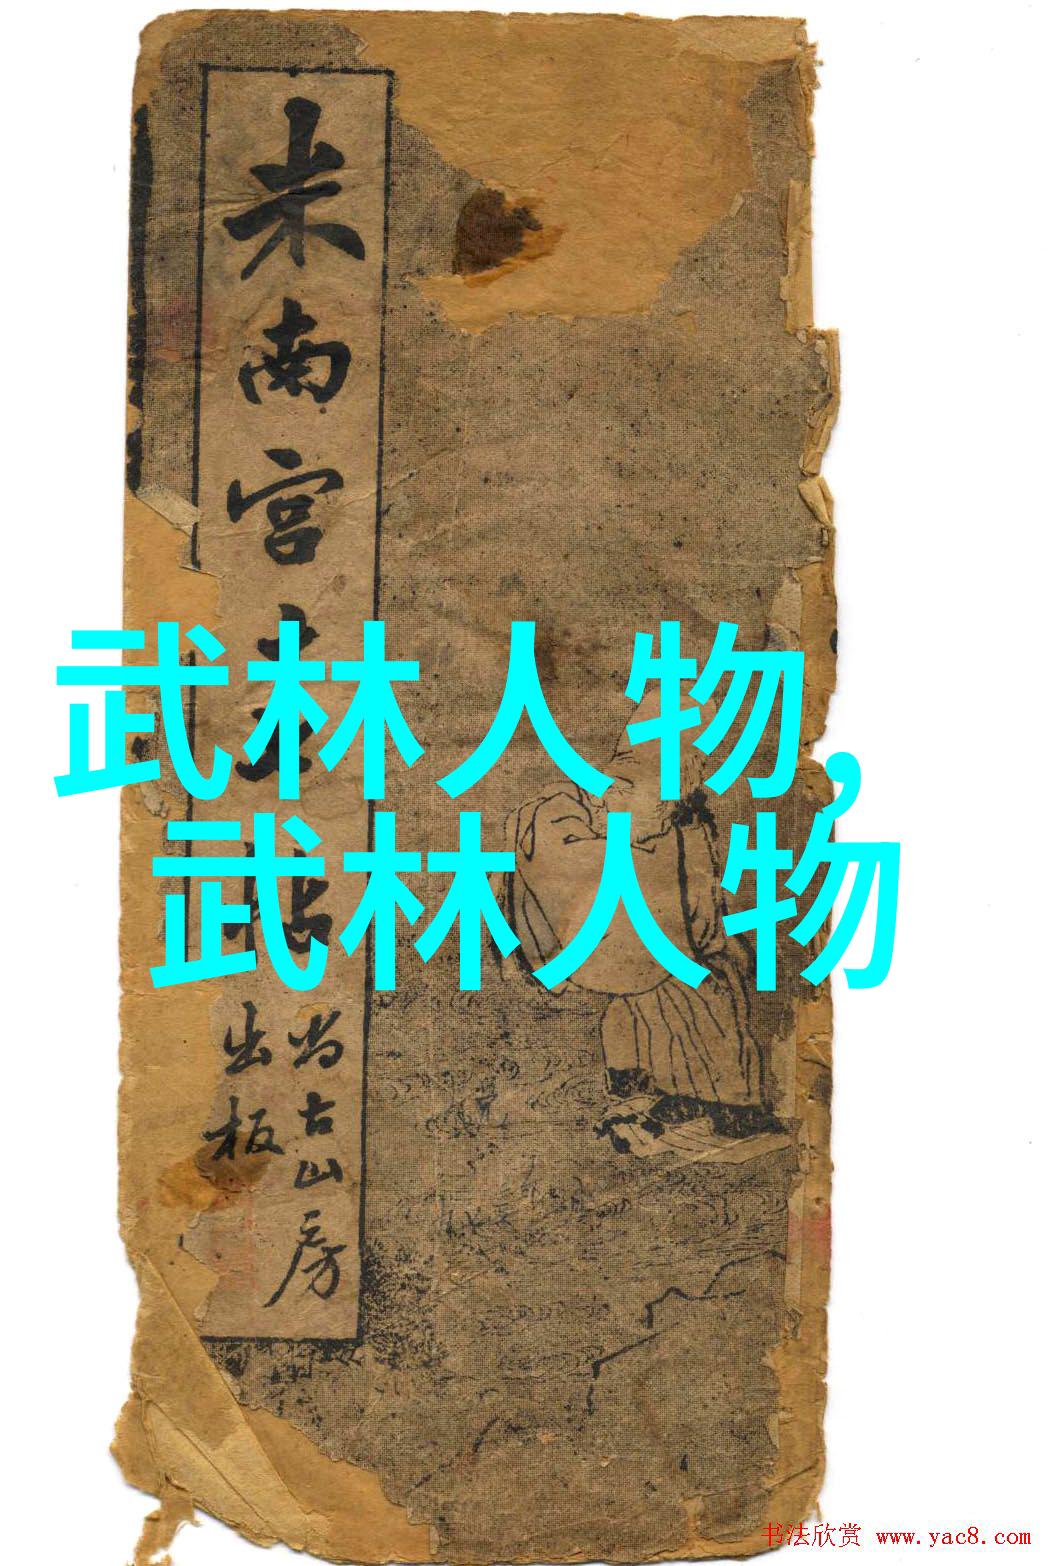 米南宫
尚古山房
出板
武林人物,
武林人物
书法欣赏 www.yac8.com